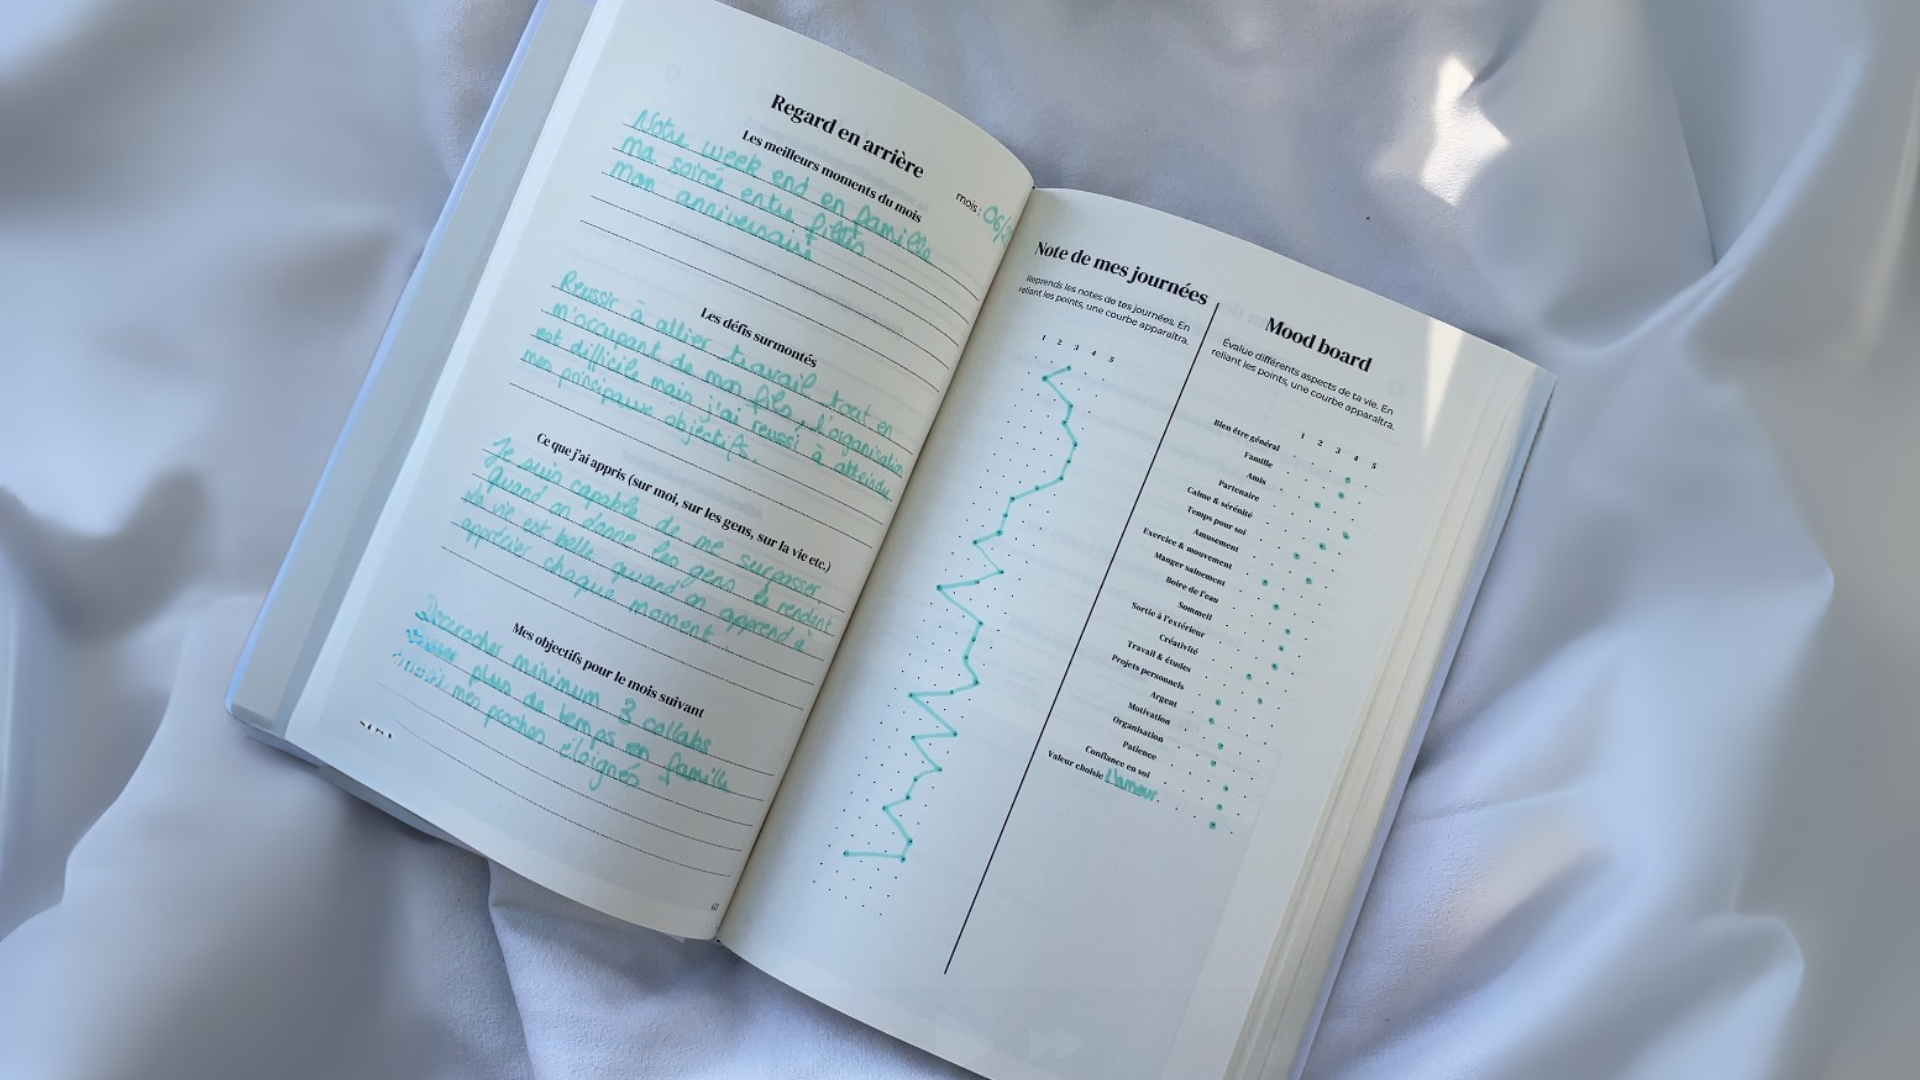 Regard en arrière
mois : 06/
Les meilleurs moments du mois
Notre week end en famille
ma soirée entre filles
mon anniversaire
Les défis surmontés
Réussir à allier travail tout en
m'occupant de mon fils, l'organisation
est difficile mais j'ai réussi à atteindre
mes principaux objectifs.
Ce que j'ai appris (sur moi, sur les gens, sur la vie etc.)
Je suis capable de me surpasser
Quand on donne les gens le rendent
La vie est belle quand on apprend à
apprécier chaque moment.
Mes objectifs pour le mois suivant
Décrocher minimum 3 collabs
plus de temps en famille
mes proches éloignés
Note de mes journées
Reprends les notes de tes journées. En
reliant les points, une courbe apparaîtra.
1 2 3 4 5
Mood board
Évalue différents aspects de ta vie. En
reliant les points, une courbe apparaîtra.
1 2 3 4 5
Bien être général
Famille
Amis
Partenaire
Calme & sérénité
Temps pour soi
Amusement
Exercice & mouvement
Manger sainement
Boire de l'eau
Sommeil
Sortie à l'extérieur
Créativité
Travail & études
Projets personnels
Argent
Motivation
Organisation
Patience
Confiance en soi
Valeur choisie L'amour